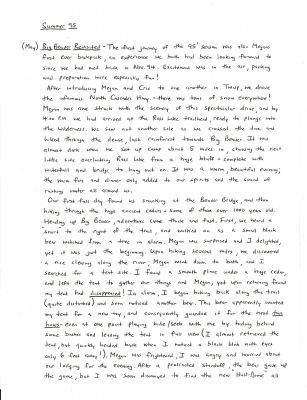 Summer 95
(May) Big Beaver Revisited - The first journey of the 95' season was also Megan's
first ever backpack, an experience we both had been looking forward to
since we had met back in Nov. 94. Excitement was in the air, packing
and preparation were especially fun!
After introducing Megan and Cric to one another in Twisp, we drove
the infamous North Cascades Hwy. - there was tons of snow everywhere!
Megan was awe struck with the scenery of this spectacular drive, and by
4:00 P.M. we had arrived at the Ross Lake trailhead, ready to plunge into
the Wilderness. We saw not another site as we crossed the dam and
hiked through the dense, lush rainforest towards Big Beaver. It was
almost dark when we set up camp about 5 miles in, choosing the next
little site overlooking Ross Lake from a huge bluff - complete with
waterfall and bridge to hang out on. It was a warm, beautiful evening;
the warm fire and dinner only added to our spirits and the sound of
rushing water all around us.
Our first full day found us snacking at the Beaver Bridge, and then
hiking through the huge ancient cedars - some of them over 1000 years old.
Heading up Big Beaver, adventure came thick and fast. First, we heard a
snort to the right of the trail, and watched as a small black
bear watched from a tree in alarm. Megan was surprised and I delighted,
yet it was just the beginning. Upon hiking several miles, we discovered
a nice clearing along the river; Megan went down to bathe, and I
searched for a tent site. I found a smooth place under a huge cedar,
and left the tent to gather our things and Megan, yet upon returning found
my tent had disappeared! In alarm, I began looking back along the trail
(quite disturbed) and soon noticed another bear. This bear apparently wanted
my tent for a new toy, and consequently guarded it for the next two
hours - even at one point playing hide/seek with me by hiding behind
some bushes and leaving the tent in full view (I almost retrieved the
tent, but quickly headed back when I noticed a black blob with eyes
only 6 feet away!). Megan was frightened, I was angry and worried about
our lodging for the evening. After a protracted standoff, the bear gave up
the game, but I was soon dismayed to find the new "built-lime" all